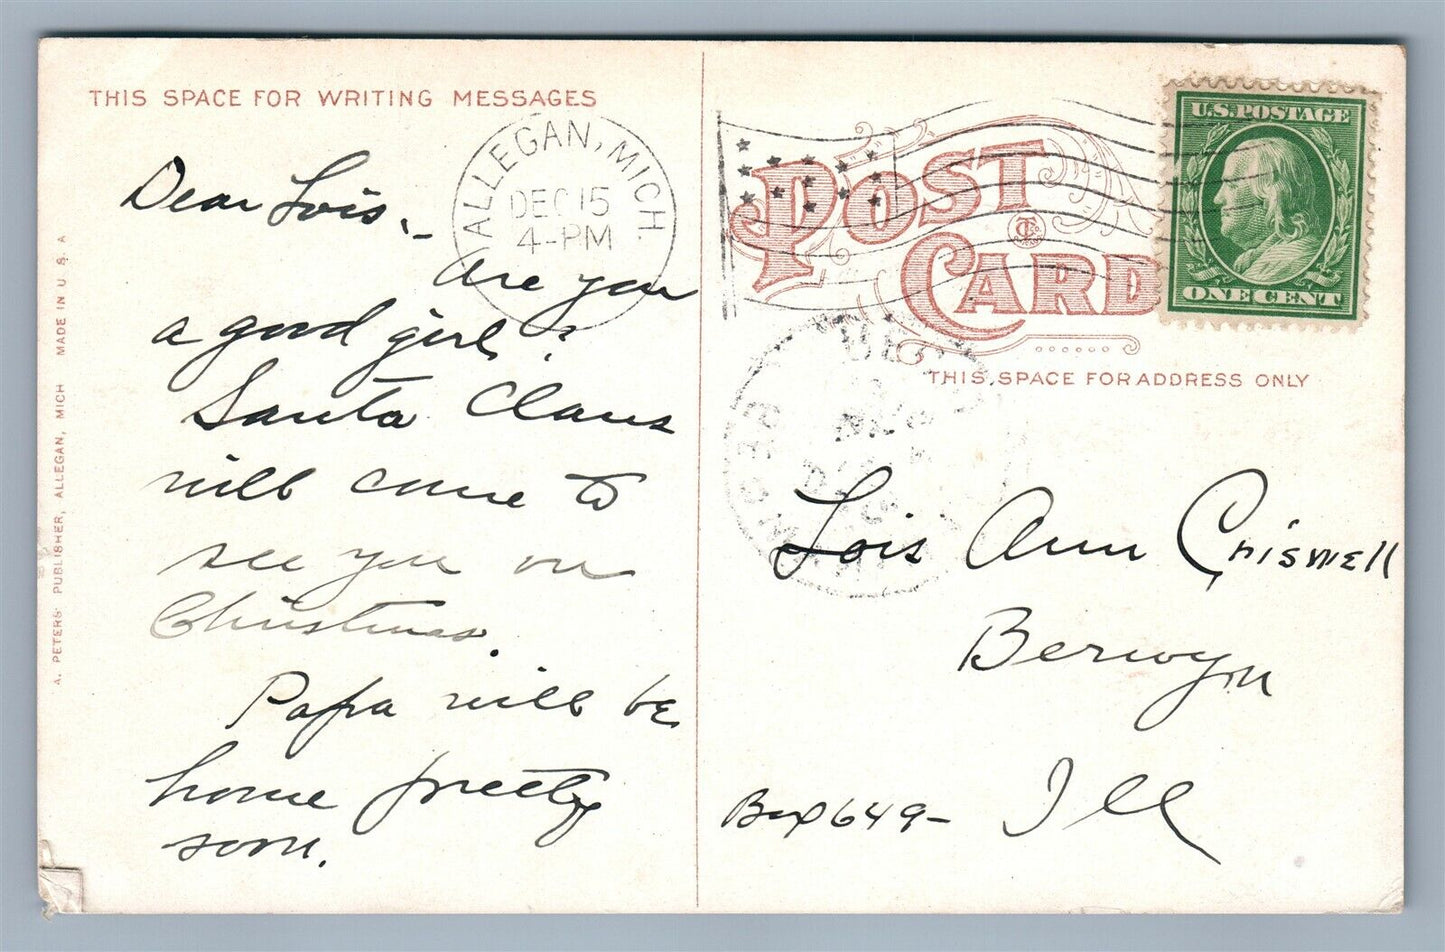 THIS SPACE FOR WRITING MESSAGES
ALLEGAN, MICH.
DEC 15
4-PM
Dear Lois,-
Are you
a good girl?
Santa Claus
will come to
see you on
Christmas.
Papa will be
home pretty
soon.
A. PETERS PUBLISHER, ALLEGAN, MICH MADE IN U S. A
POST
CARD
U.S. POSTAGE
ONE CENT
THIS SPACE FOR ADDRESS ONLY
Lois Ann Criswell
Berwyn
Box 649- Ill